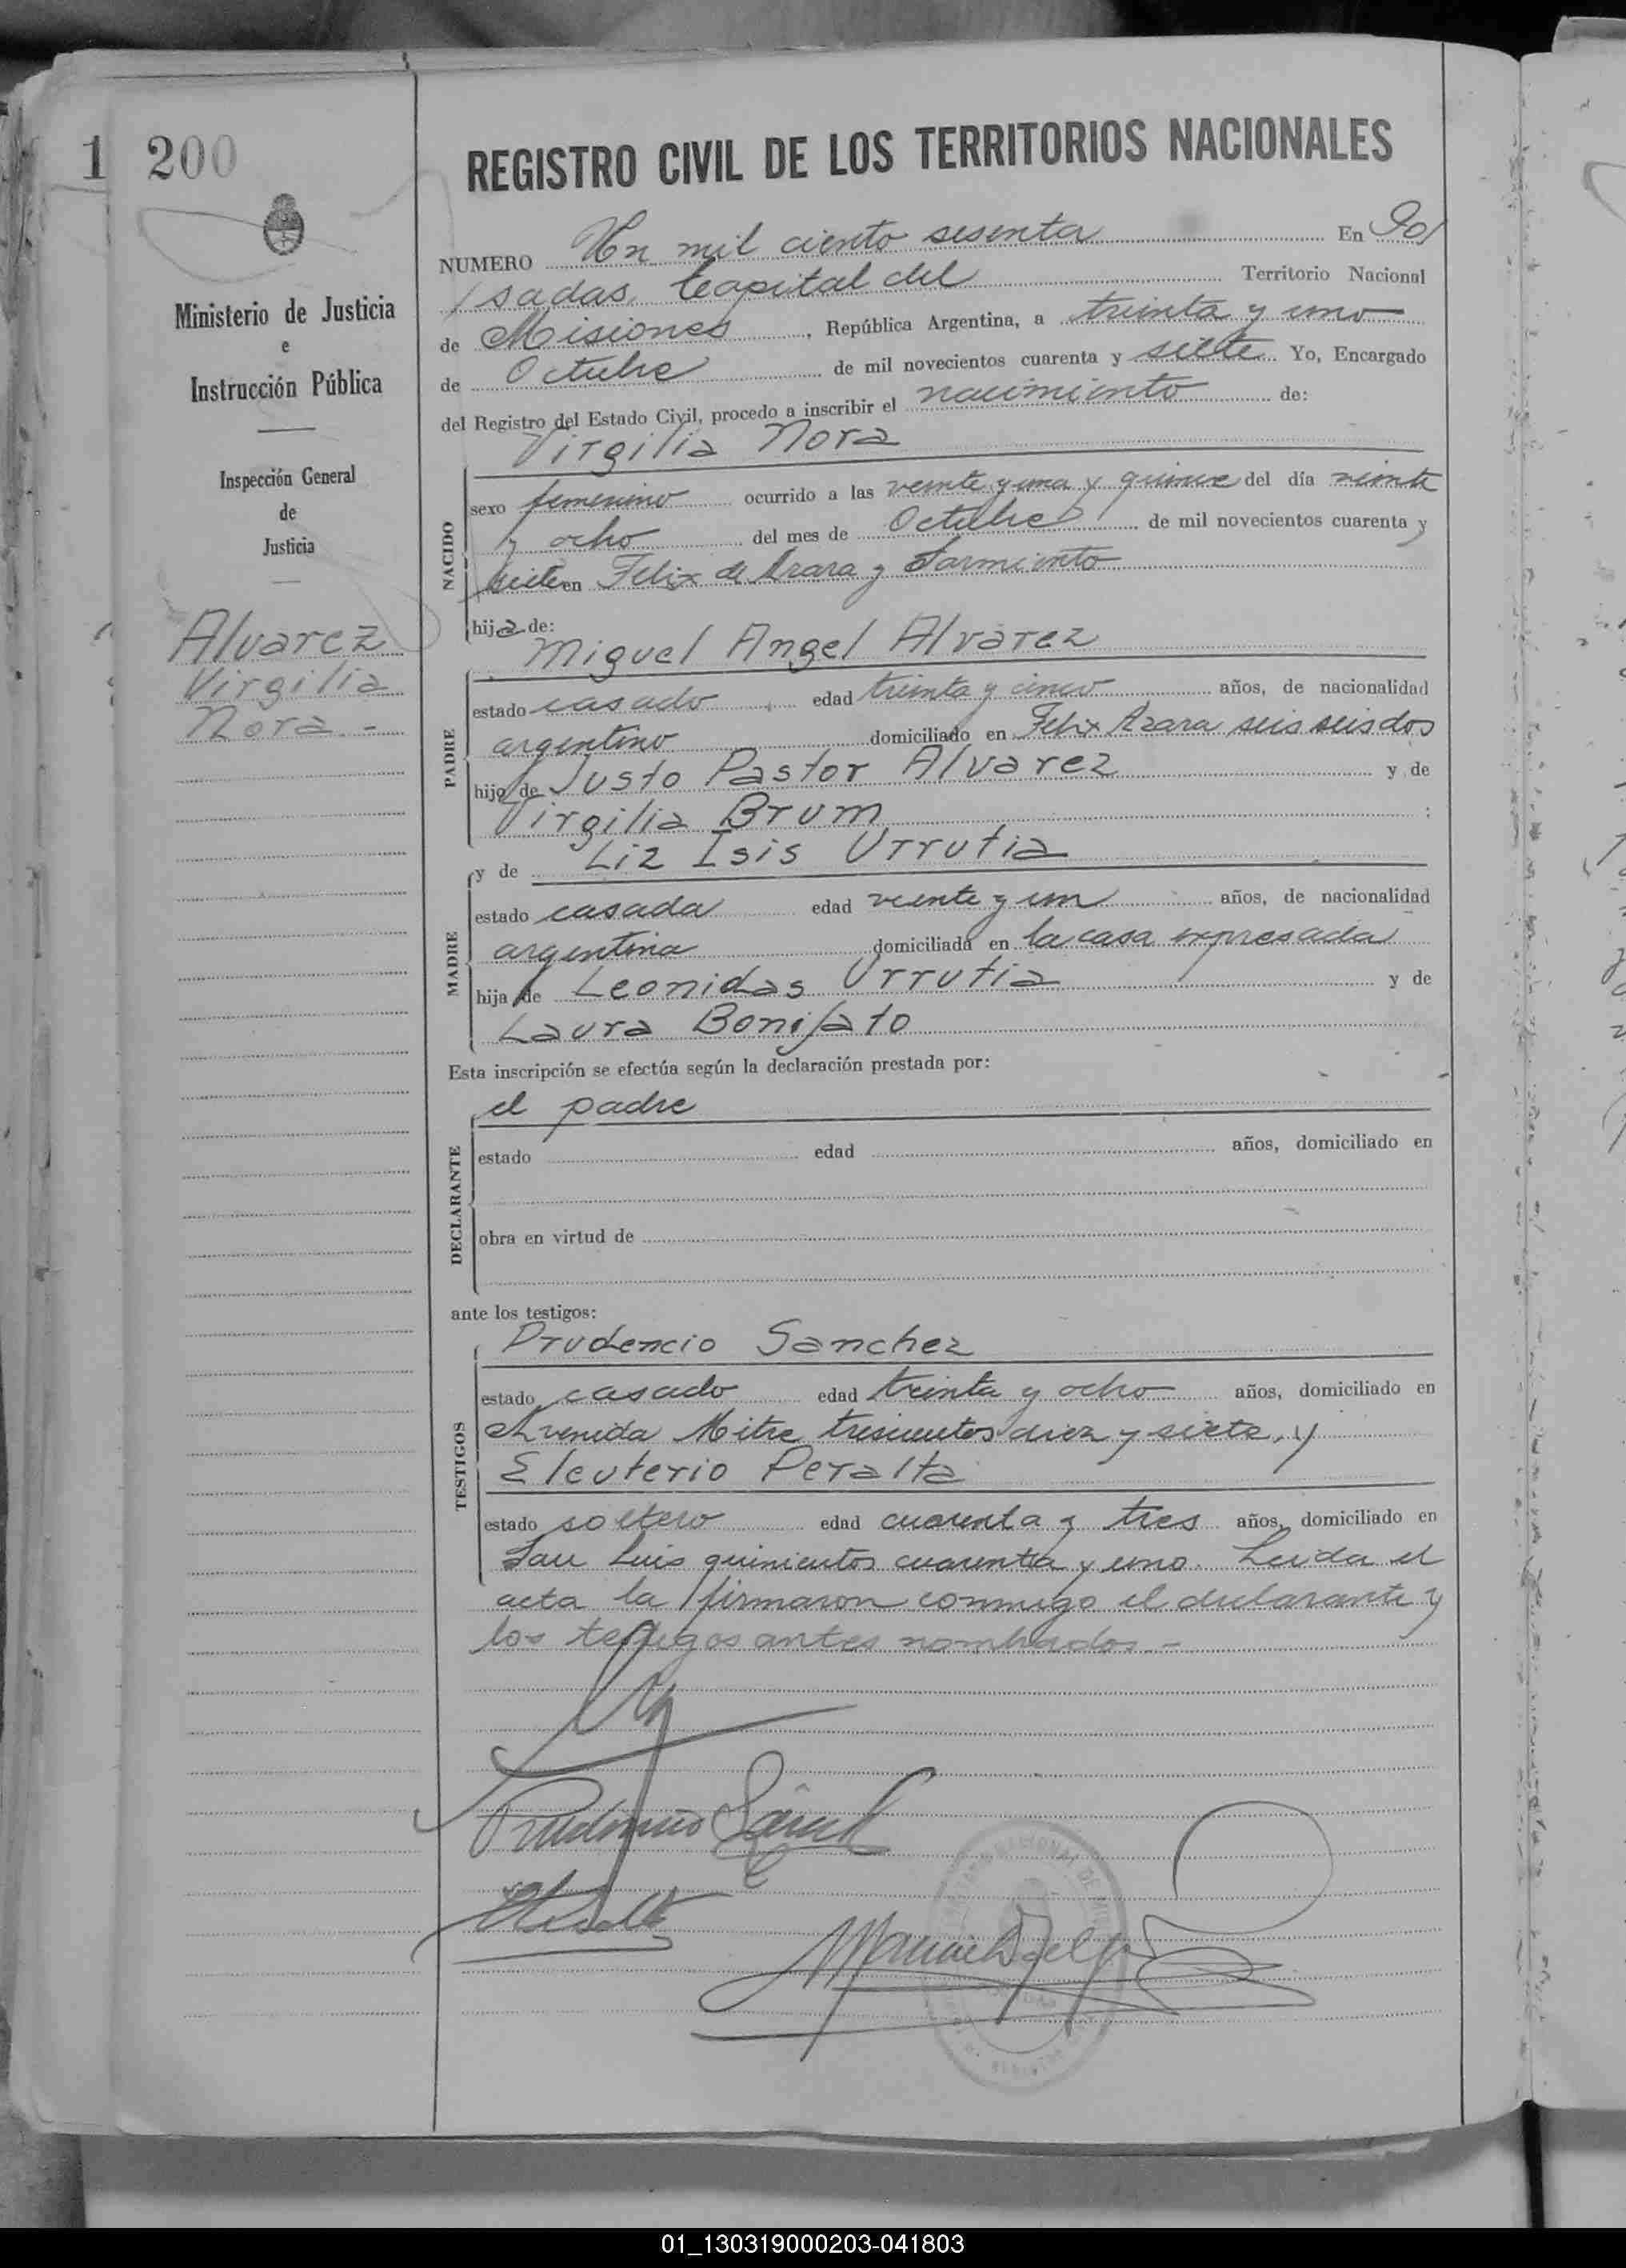 1 200
REGISTRO CIVIL DE LOS TERRITORIOS NACIONALES
Ministerio de Justicia
e
Instrucción Pública
Inspección General
de
Justicia
Alvarez
Virgilia
Nora.-
NUMERO Un mil ciento sesenta En Po/
/sadas, Capital del Territorio Nacional
de Misiones, República Argentina, a treinta y uno
de Octubre de mil novecientos cuarenta y siete. Yo, Encargado
del Registro del Estado Civil, procedo a inscribir el nacimiento de:
Virgilia Nora
NACIDO
sexo femenino ocurrido a las veinte y una y quince del día veinte
y ocho del mes de Octubre de mil novecientos cuarenta y
siete en Felix de Azara y Sarmiento
hija de:
Miguel Angel Alvarez
PADRE
estado casado edad treinta y cinco años, de nacionalidad
argentino domiciliado en Felix Azara seis seis dos
hijo de Justo Pastor Alvarez y de
Virgilia Brum;
y de Liz Isis Urrutia
MADRE
estado casada edad veinte y un años, de nacionalidad
argentina domiciliada en la casa expresada
hija de Leonidas Urrutia y de
Laura Bonifato
Esta inscripción se efectúa según la declaración prestada por:
el padre
DECLARANTE
estado edad años, domiciliado en
obra en virtud de
ante los testigos:
Prudencio Sanchez
TESTIGOS
estado casado edad treinta y ocho años, domiciliado en
Avenida Mitre trescientos diez y siete, y
Eleuterio Peralta
estado soltero edad cuarenta y tres años, domiciliado en
San Luis quinientos cuarenta y uno. Leida el
acta la firmaron conmigo el declarante y
los testigos antes nombrados.-
01_130319000203-041803